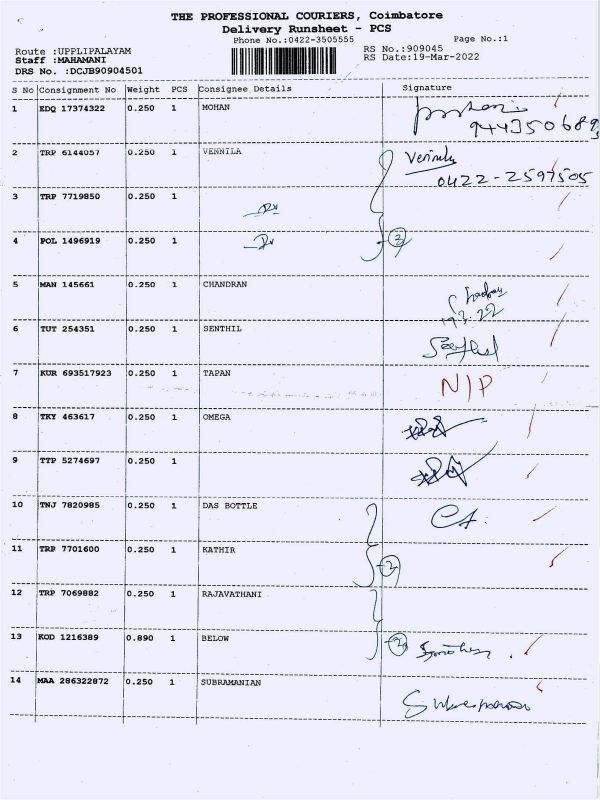 THE PROFESSIONAL COURIERS, Coimbatore
Delivery Runsheet - PCS
Phone No.:0422-3505555 Page No.:1
Route :UPPLIPALAYAM RS No.:909045
Staff :MAHAMANI RS Date:19-Mar-2022
DRS No. :DCJB90904501
S No Consignment No Weight PCS Consignee Details Signature
1 EDQ 17374322 0.250 1 MOHAN
2 TRP 6144057 0.250 1 VENNILA
0422-2597505
3 TRP 7719850 0.250 1
4 POL 1496919 0.250 1
5 MAN 145661 0.250 1 CHANDRAN
6 TUT 254351 0.250 1 SENTHIL
7 KUR 693517923 0.250 1 TAPAN N/P
8 TKY 463617 0.250 1 OMEGA
9 TTP 5274697 0.250 1
10 TNJ 7820985 0.250 1 DAS BOTTLE
11 TRP 7701600 0.250 1 KATHIR
12 TRP 7069882 0.250 1 RAJAVATHANI
13 KOD 1216389 0.890 1 BELOW
14 MAA 286322872 0.250 1 SUBRAMANIAN